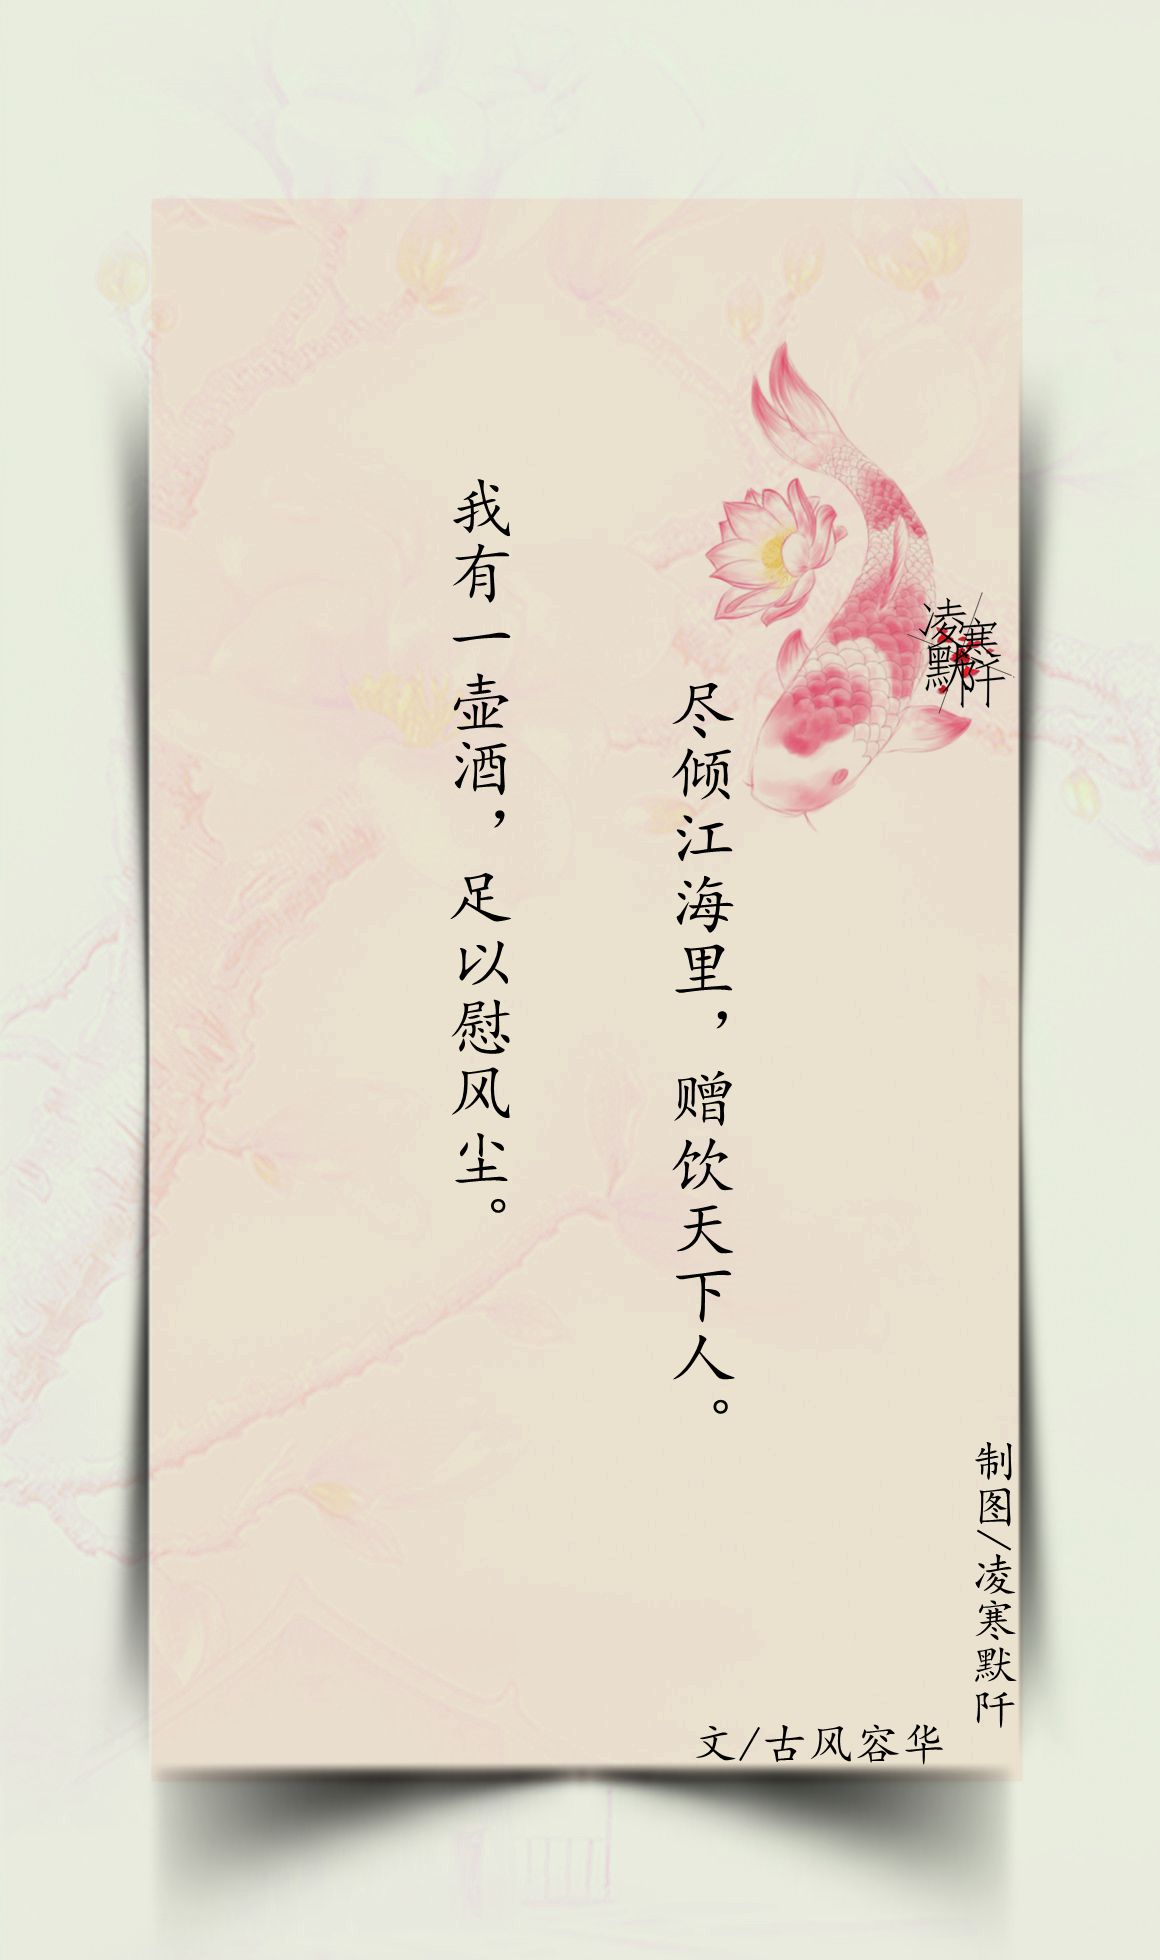 我有一壶酒，足以慰风尘。
尽倾江海里，赠饮天下人。
凌寒
默阡
制图/凌寒默阡
文/古风容华